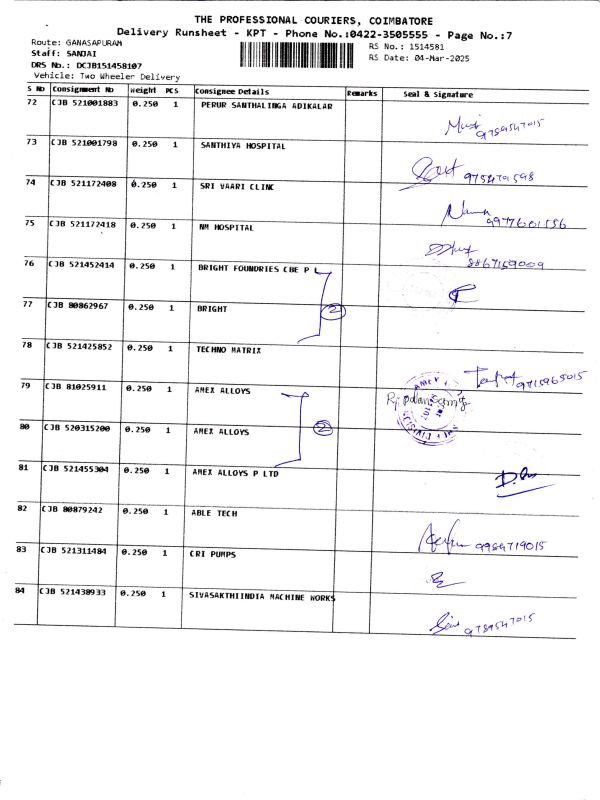 THE PROFESSIONAL COURIERS, COIMBATORE
Delivery Runsheet - KPT - Phone No.:0422-3505555 - Page No.:7
Route: GANASAPURAM
RS No.: 1514581
Staff: SANJAI
RS Date: 04-Mar-2025
DRS No.: DCJB151458107
Vehicle: Two Wheeler Delivery
S No Consignment No Weight PCS Consignee Details Remarks Seal & Signature
72 CJB 521001883 0.250 1 PERUR SANTHALINGA ADIKALAR
9789547015
73 CJB 521001798 0.250 1 SANTHIYA HOSPITAL
9754791598
74 CJB 521172408 0.250 1 SRI VAARI CLINC
9977601556
75 CJB 521172418 0.250 1 NM HOSPITAL
8867159009
76 CJB 521452414 0.250 1 BRIGHT FOUNDRIES CBE P L
77 CJB 80862967 0.250 1 BRIGHT
2
78 CJB 521425852 0.250 1 TECHNO MATRIX
9715965015
79 CJB 81025911 0.250 1 AMEX ALLOYS
80 CJB 520315200 0.250 1 AMEX ALLOYS
2
81 CJB 521455304 0.250 1 AMEX ALLOYS P LTD
82 CJB 80879242 0.250 1 ABLE TECH
9984719015
83 CJB 521311484 0.250 1 CRI PUMPS
84 CJB 521438933 0.250 1 SIVASAKTHIINDIA MACHINE WORKS
9789547015